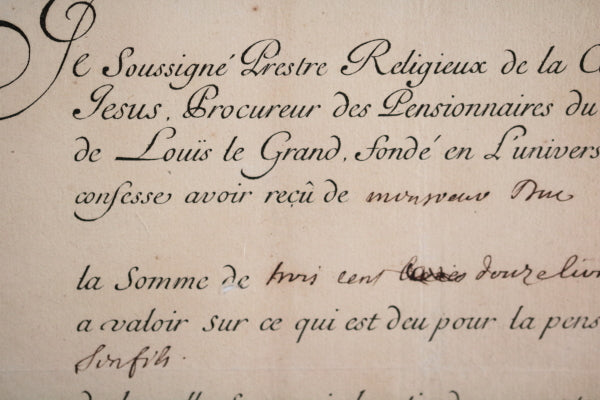 Je Soussigné Prestre Religieux de la C
Jesus, Procureur des Pensionnaires du
de Louïs le Grand, fondé en L'univers
confesse avoir reçû de monsieur
la Somme de trois cent douze livr
a valoir sur ce qui est deu pour la pens
son fils.